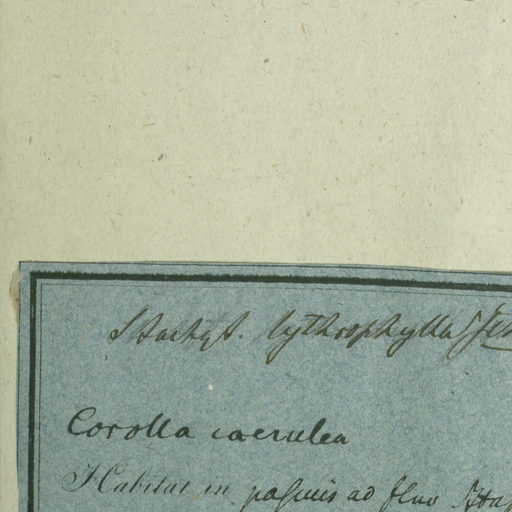 Stachyt. lythrophylla
Corolla caerulea
Habitat in pascuis ad fluv